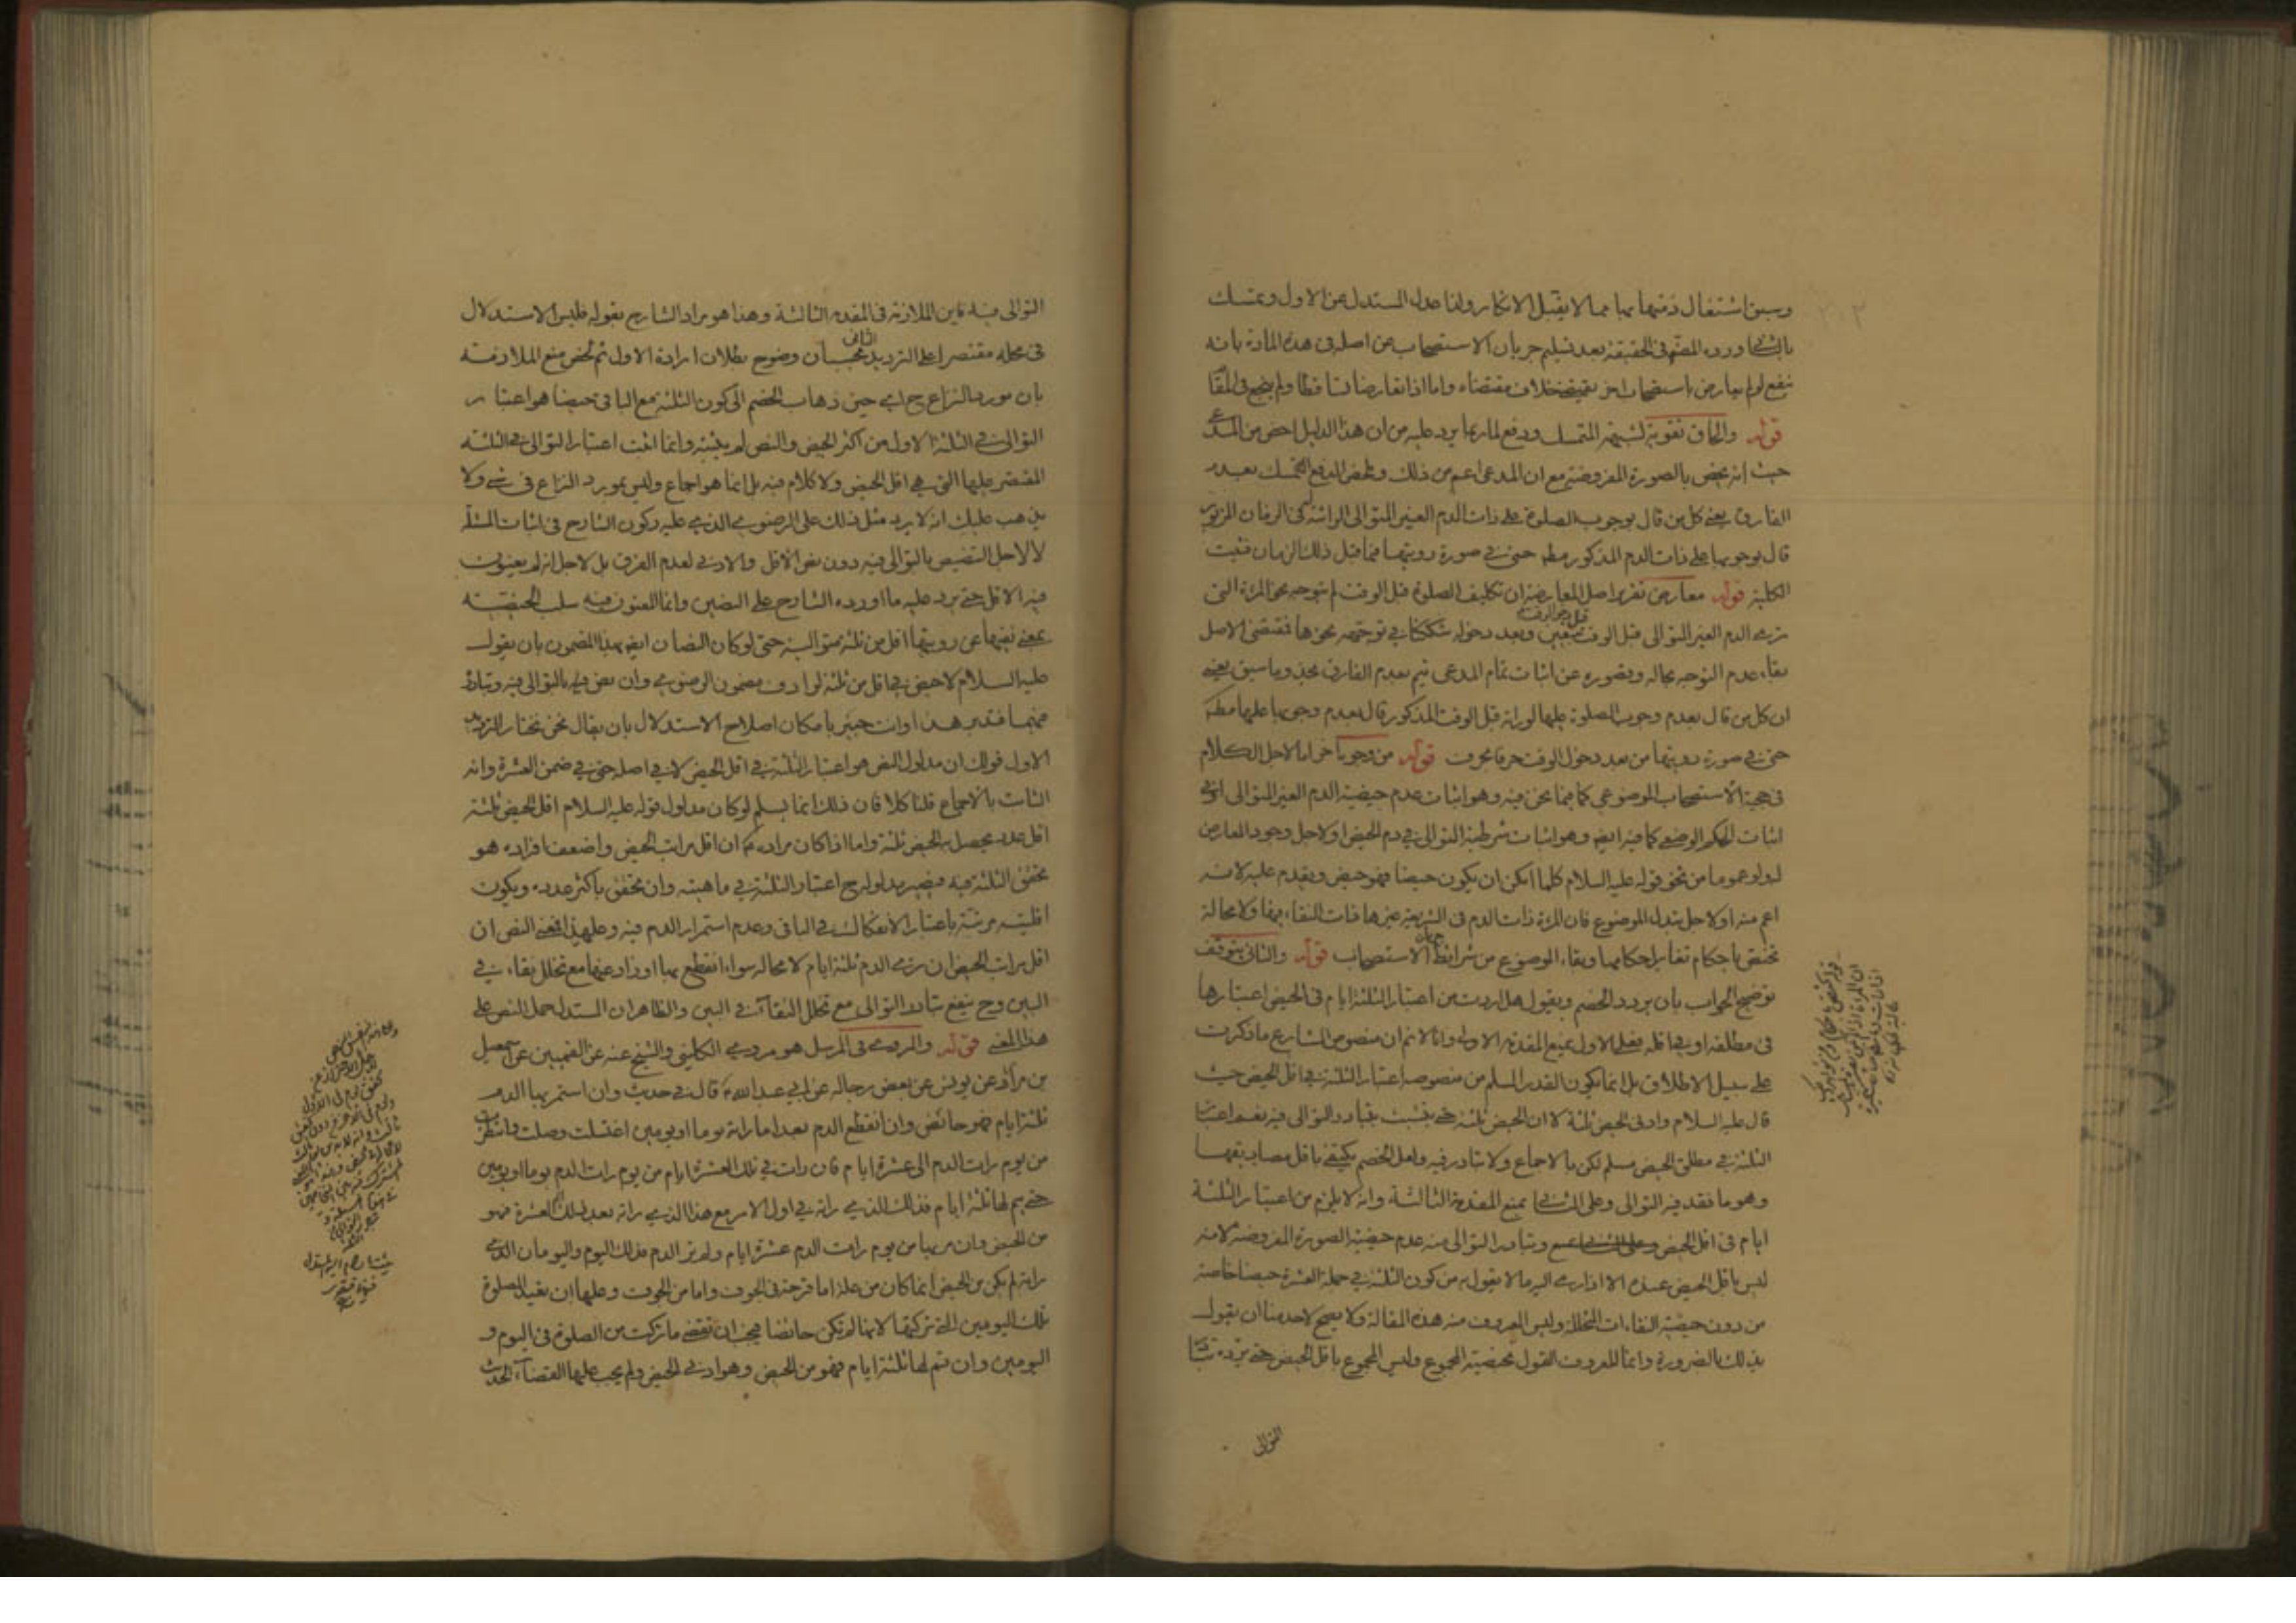 وسبق اشتغال ذمتها بها مما لا يقبل الانكار ولذا عدل المستدل عن الاول وتمسك
بالثاني ورده المصنف في الحقيقة بعد تسليم جريان الاستصحاب من اصله في هذه المادة بانه
ينفع لو لم يعارض باستصحاب اخر يقتضي خلاف مقتضاه واما اذا تعارضا تساقطا ولم ينجع في المقام
قوله والحاق تقوية لشبهة المتمسك ودفع لما ربما يرد عليه من ان هذا الدليل اخص من المدعى
حيث انه يختص بالصورة المفروضة مع ان المدعى اعم من ذلك وملخص الدفع التمسك بعدم
الفارق يعني كل من قال بوجوب الصلوة على ذات الدم الغير المتوالي الرائية في الزمان المزبور
قال بوجوبها على ذات الدم المذكور مطلقا حتى في صورة رؤيتها فيما قبل ذلك الزمان فثبت
الكلية قوله معارض تقرير اصل المعارضة ان تكليف الصلوة قبل الوقت لم يتوجه نحو المرئة التي
ترى الدم الغير المتوالي قبل الوقت وبعد دخوله شككنا في توجهه نحوها فمقتضى الاصل
بقاء عدم التوجه بحاله وقصوره عن اثبات تمام المدعى تيم بعدم الفارق بحذو ما سبق يعني
ان كل من قال بعدم وجوب الصلوة عليها لو راته قبل الوقت المذكور قال بعدم وجوبها عليها مطلقا
حتى في صورة رؤيتها من بعد دخول الوقت حرفا بحرف قوله من وجوه اخر اما لاجل الكلام
في حجية الاستصحاب الموضوعي كما فيما نحن فيه وهو اثبات عدم حيضية الدم الغير المتوالي او في
اثبات الحكم الوضعي كما فيه ايضا وهو اثبات شرطية التوالي في دم الحيض او لاجل وجود المعارض
له ولو عموما من نحو قوله عليه السلام كلما امكن ان يكون حيضا فهو حيض ويقدم عليه لانه
اعم منه او لاجل تبدل الموضوع فان المرئة ذات الدم في الشريعة غيرها ذات النقاء فيها ولا محالة
تختص باحكام تغاير احكامها وبقاء الموضوع من شرائط جريان الاستصحاب قوله والثاني يتوقف
توضيح الجواب بان يردد الخصم ويقول هل اردت من اعتبار الثلثة ايام في الحيض اعتبارها
في مطلقه او في اقله فعلى الاول بمنع المقدمة الاولى وانا لا نم ان منصوص الشارع ما ذكرت
على سبيل الاطلاق بل انما يكون القدر المسلم من منصوصه اعتبار الثلثة في اقل الحيض حيث
قال عليه السلام وادنى الحيض ثلثة لا ان الحيض ثلثة حتى يتشبث بتبادر التوالي فيه نعم اعتبار
الثلثة في مطلق الحيض مسلم لكن بالاجماع ولا تبادر فيه ولعل الخصم يكتفي باقل مصاديقها
وهو ما فقد فيه التوالي وعلى الثاني بمنع المقدمة الثالثة وانه لا يلزم من اعتبار الثلثة
ايام في اقل الحيض وتبادر التوالي منه عدم حيضية الصورة المفروضة لانه
ليس باقل الحيض عنده الا اذا رمى اليه ما لا يقول به من كون الثلثة في جملة العشرة حيضا خاصة
من دون حيضية النقاءات المتخللة وليس المعروف منه هذه المقالة ولا يصح لاحد منا ان يقول
بذلك بالضرورة وانما المعروف القول بحيضية المجموع وليس المجموع باقل الحيض حتى يرده تبادر
التوالي
التوالي فيه فاين الملازمة في المقدمة الثالثة وهذا هو مراد الشارح بقوله فليس الاستدلال
في محله مقتصرا على الترديد الثاني بحسبان وضوح بطلان ارادة الاول ثم لخص منع الملازمة
بان مورد النزاع ح اي حين ذهاب الخصم الى كون الثلثة مع الباقي حيضا هو اعتبار
التوالي في الثلثة الاول من اكثر الحيض والنص لم يثبته وانما اثبت اعتبار التوالي في الثلثة
المقتصر عليها التي هي اقل الحيض ولا كلام فيه بل انما هو اجماع وليس بمورد النزاع في شئ ولا
يذهب عليك انه لا يرد مثل ذلك على الرضوي الذي عليه ركون الشارح في اثبات المسئلة
لا لاجل التنصيص بالتوالي فيه دون نص الاقل والادنى لعدم الفرق بل لاجل انه لم يعنون
فيه الاقل حتى يرد عليه ما اورده الشارح على النصين وانما المعنون فيه سلب الحيضية
بمعنى نفيها عن رؤيتها اقل من ثلثة متوالية حتى لو كان النصان ايضا بهذا المضمون بان يقول
عليه السلام لا حيض في اقل من ثلثة لرادف مضمون الرضوي وان نص فيه بالتوالي فيه وتبادر
منهما فتدبر هذا وانت خبير بامكان اصلاح الاستدلال بان يقال نحن نختار الترديد
الاول قولك ان مدلول النص هو اعتبار الثلثة في اقل الحيض لا في اصله حتى في ضمن العشرة وانه
الثابت بالاجماع قلنا كلا فان ذلك انما يسلم لو كان مدلول قوله عليه السلام اقل الحيض ثلثة
اقل عدد يحصل به الحيض ثلثة واما اذا كان مراده ان اقل مراتب الحيض واضعف افراده هو
تحقق الثلثة فيه فيصير مدلوله ح اعتبار الثلثة في ماهيته وان تحقق باكثر عدده ويكون
اقليته مرتبة باعتبار الانفكاك في الباقي وعدم استمرار الدم فيه وعليهذا فمعنى النص ان
اقل مراتب الحيض ان ترى الدم ثلثة ايام لا محالة سواء انقطع بها او زاد عنها مع تخلل نقاء في
البين وح ينفع تبادر التوالي مع تخلل النقاآت في البين والظاهر ان المستدل حمل النص على
هذا المعنى قوله والمروي في المرسل هو مروي الكليني والشيخ عنه عن القميين عن اسمعيل
بن مرار عن يونس عن بعض رجاله عن ابي عبد الله قال في حديث وان استمر بها الدم
ثلثة ايام فهو حائض وان انقطع الدم بعد ما راته يوما او يومين اغتسلت وصلت وانتظرت
من يوم رات الدم الى عشرة ايام فان رات في تلك العشرة ايام من يوم رات الدم يوما او يومين
حتى يتم لها ثلثة ايام فذلك الذي راته في اول الامر مع هذا الذي راته بعد ذلك في العشرة فهو
من الحيض وان مر بها من يوم رات الدم عشرة ايام ولم تر الدم فذلك اليوم واليومان الذي
راته لم يكن من الحيض انما كان من علة اما قرحة في الجوف واما من الجوف وعليها ان تعيد الصلوة
تلك اليومين التي تركتها لانها لم تكن حائضا فيجب ان تقضي ما تركت من الصلوة في اليوم و
اليومين وان تم لها ثلثة ايام فهو من الحيض وهو ادنى الحيض ولم يجب عليها القضاء الحديث